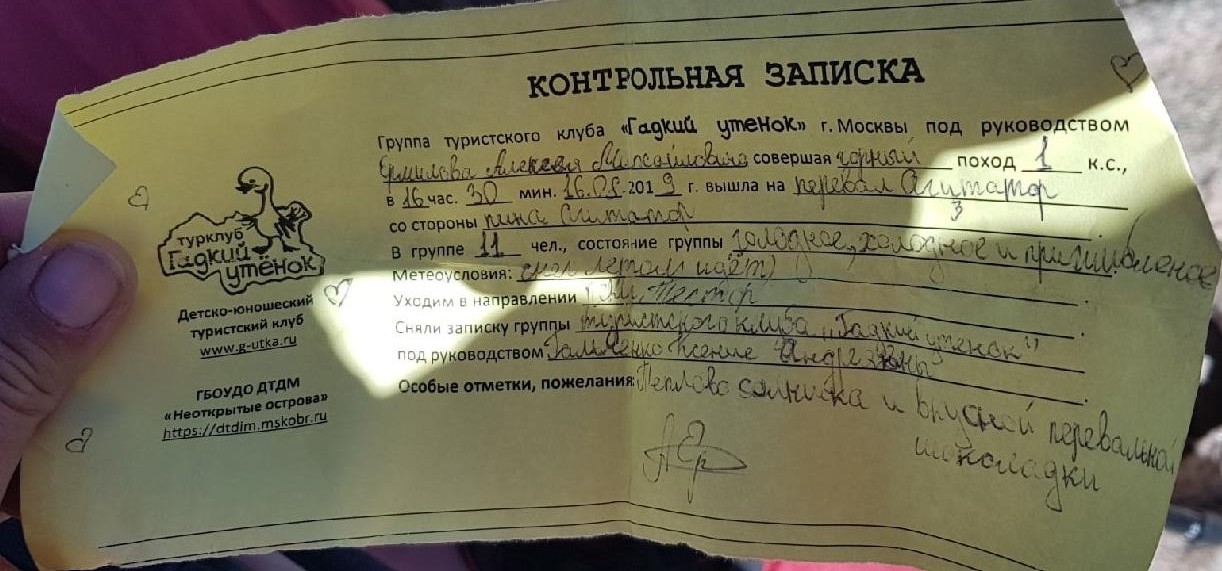 КОНТРОЛЬНАЯ ЗАПИСКА
Группа туристского клуба «Гадкий утенок» г. Москвы под руководством
Ермилова Алексея Михайловича совершая горный поход 1 к.с.,
в 16 час. 30 мин. 16.08.2019 г. вышла на перевал Агитатор
3
со стороны пика Агитатор
В группе 11 чел., состояние группы голодное, холодное и
Метеоусловия: снег летом идёт)
Уходим в направлении
Сняли записку группы туристского клуба "Гадкий утенок"
под руководством Ксение Андреевны
Особые отметки, пожелания: Теплова солнышка и вкусной перевальной
шоколадки
турклуб
Гадкий
утёнок
Детско-юношеский
туристский клуб
www.g-utka.ru
ГБОУДО ДТДМ
«Неоткрытые острова»
https://dtdim.mskobr.ru